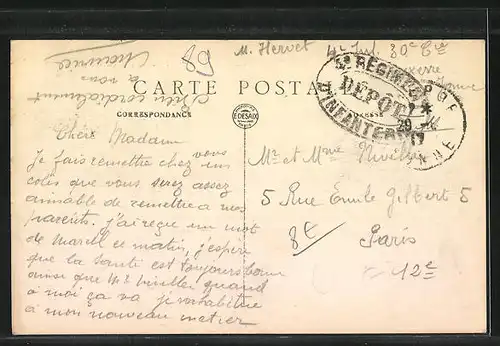 89
M. Hervet 4e Inf. 30e Cie
Auxerre
Yonne
CARTE POSTALE
CORRESPONDANCE
ADRESSE
DESAIX
DÉPÔT
D'INFANTERIE
Chère Madame
Je fais remettre chez vous un
colis que vous serez assez
aimable de remettre a mes
parents. J'ai reçu un mot
de Marcel ce matin, j'espère
que la santé est toujours bonne
ainsi que Mr Nivillier quand
à moi ça va je m'habitue
à mon nouveau metier
bien cordialement
a vous
Maurice
Mr et Mme
5 Rue Emile Gilbert 5
Paris
12e